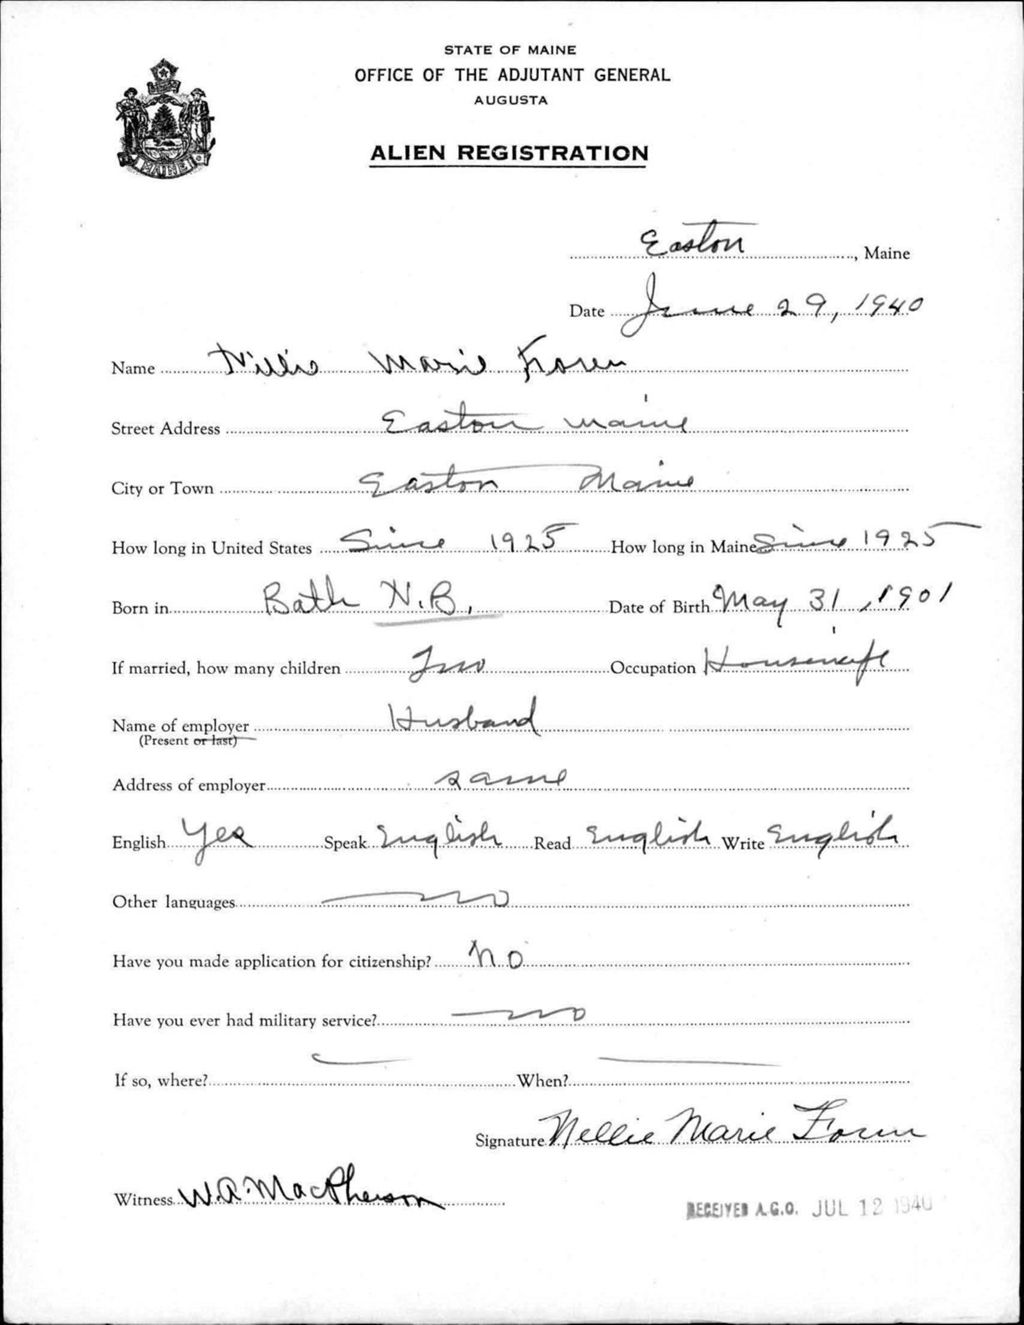 STATE OF MAINE
OFFICE OF THE ADJUTANT GENERAL
AUGUSTA
ALIEN REGISTRATION
MAINE
Easton, Maine
Date June 29, 1940
Name Nellie Marie
Street Address Easton Maine
City or Town Easton Maine
How long in United States Since 1925 How long in Maine Since 1925
Born in Bath N.B. Date of Birth May 31, 1901
If married, how many children Two Occupation Housewife
Name of employer Husband
(Present or last)
Address of employer same
English Yes Speak English Read English Write English
Other languages no
Have you made application for citizenship? No
Have you ever had military service? no
If so, where? — When? —
Signature Nellie Marie
Witness W.A. MacPherson
RECEIVED A.G.O. JUL 12 1940